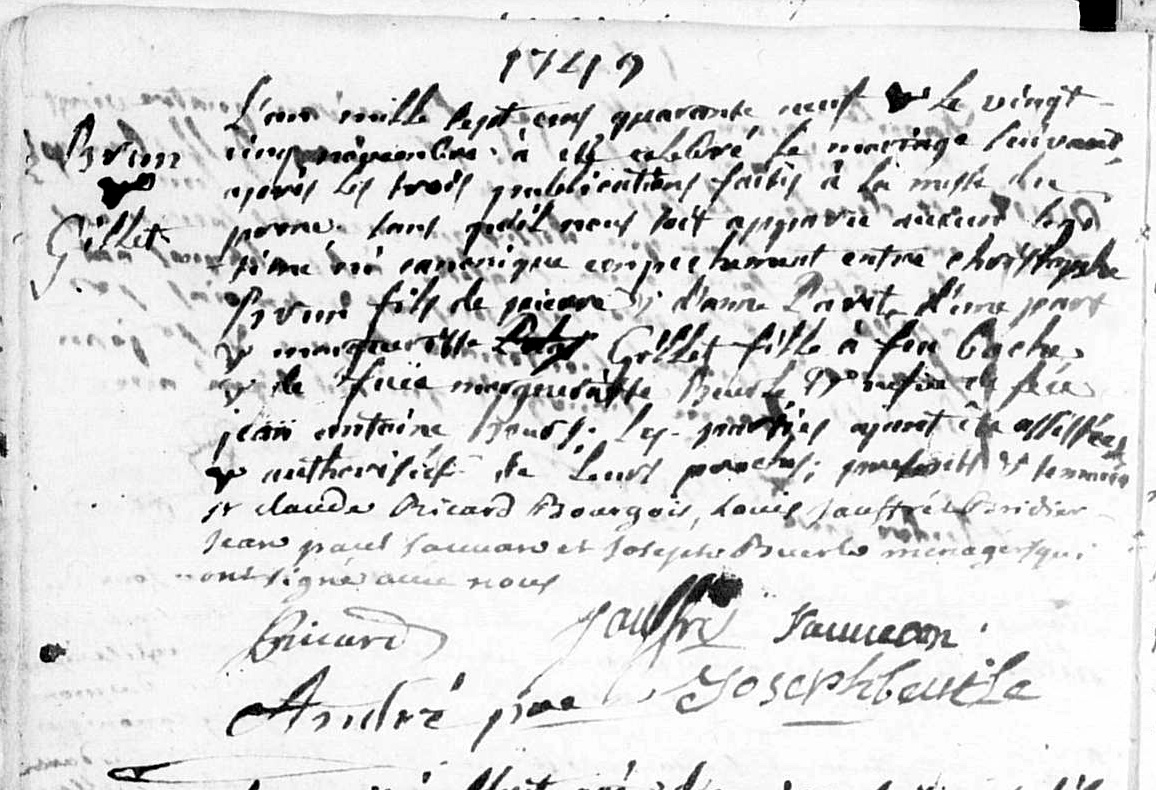 1749
L'an mille sept cens quarante neuf & le vingt
Brun
&
Gillet
cinq novembre à été celebré le mariage suivant
apres les trois publications faites à la messe du
prone sans qu'il nous soit apparu aucun legi
time ni canonique empechement entre christophe
Brun fils de pierre & d'anne d'une part
& margueritte Gillet fille à feu
& de füe margueritte Beuf
jean antoine les parties ayant été assistées
& authorisées de leurs presents & temoins
sr claude Bricard Bourgois, Louis Jauffré
Jean paul et Joseph menagers qui
ont signé avec nous
Bricard Jauffré
André Josephbeuf Le